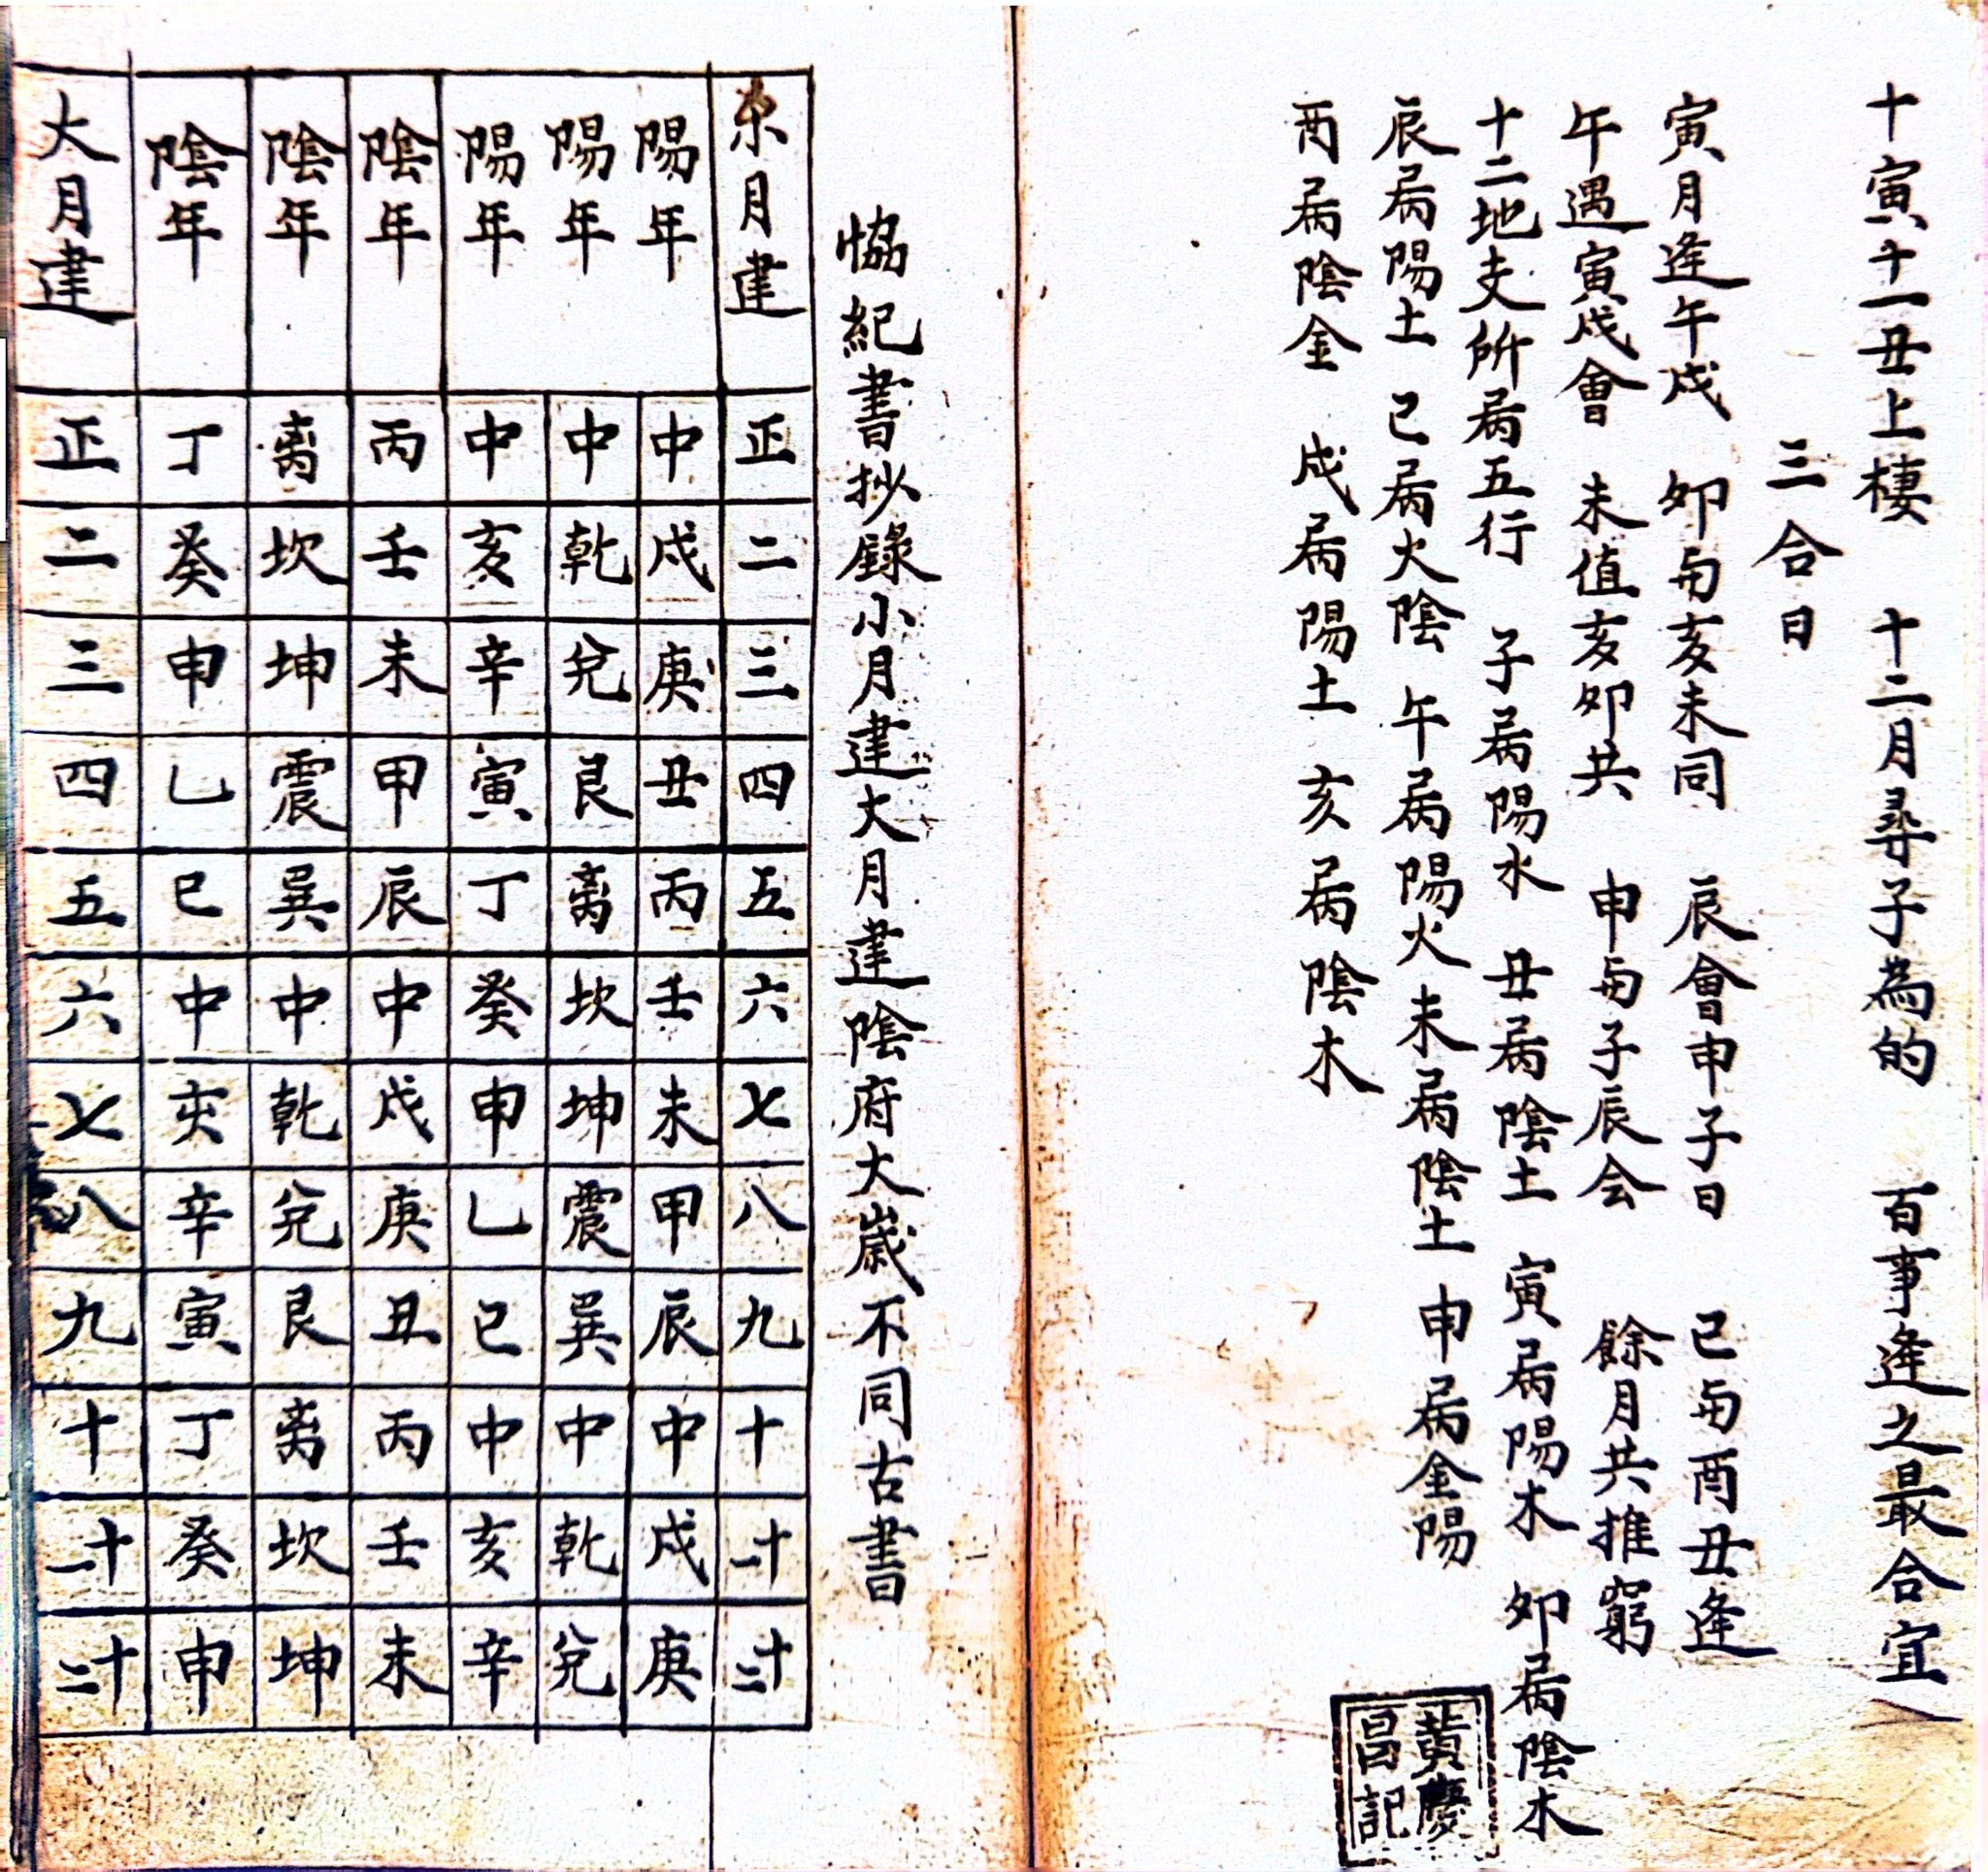 十寅十一丑上棲 十二月尋子為的 百事逢之最合宜
三合日
寅月逢午戌 卯与亥未同 辰會申子日 已与酉丑逢
午遇寅戌會 未值亥卯共 申与子辰会 餘月共推窮
十二地支所属五行 子属陽水 丑属陰土 寅属陽木 卯属陰木
辰属陽土 已属火陰 午属陽火 未属陰土 申属金陽
酉属陰金 戌属陽土 亥属陰木
黃慶
昌記
恊紀書抄錄小月建大月建陰府大歲不同古書
月建 正 二 三 四 五 六 七 八 九 十 十一 十二
陽年 中 戌 庚 丑 丙 壬 未 甲 辰 中 戌 庚
陽年 中 乾 兌 艮 离 坎 坤 震 巽 中 乾 兌
陽年 中 亥 辛 寅 丁 癸 申 乙 已 中 亥 辛
陰年 丙 壬 未 甲 辰 中 戌 庚 丑 丙 壬 未
陰年 离 坎 坤 震 巽 中 乾 兌 艮 离 坎 坤
陰年 丁 癸 申 乙 已 中 亥 辛 寅 丁 癸 申
大月建 正 二 三 四 五 六 七 八 九 十 十一 十二